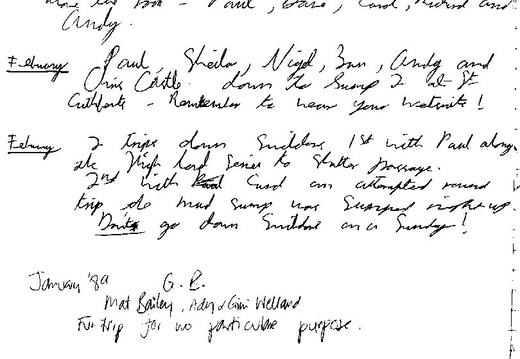 the - Paul, Dave, Carol, Richard and
Andy.
February Paul, Sheila, Nigel, Ian, Andy and
Chris Castle. down to Sump 2 at St
Cuthberts - Remember to wear your wetsuits!
February 2 trips down Swildons 1st with Paul along
the High land Series to Shatter Passage.
2nd with Carol an attempted round
trip the mud sump was Sumped right up
Don't go down Swildons on a Sunday!
January '89 G.B.
Mat Bailey, Ady & Welland
Fun trip for no particular purpose.